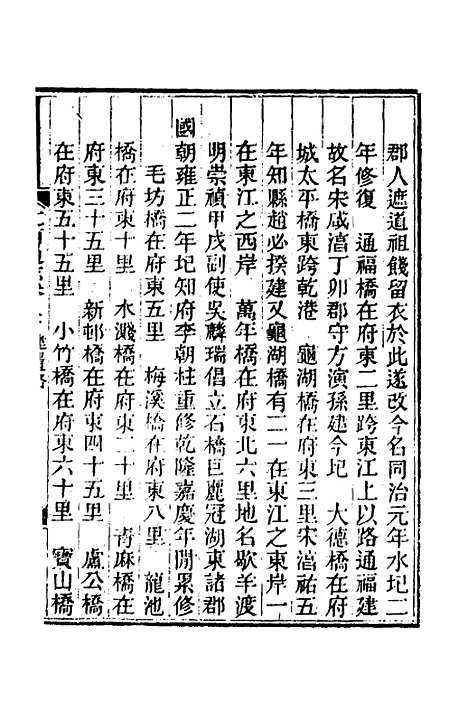 郡人遮道祖餞留衣於此遂改今名同治元年水圮二
年修復　通福橋在府東二里跨東江上以路通福建
故名宋咸淳丁卯郡守方演孫建今圮　大德橋在府
城太平橋東跨乾港　龜湖橋在府東三里宋淳祐五
年知縣趙必揆建又龜湖橋有二一在東江之東岸一
在東江之西岸　萬年橋在府東北六里地名歇羊渡
明崇禎甲戌副使吳麟瑞倡立石橋巨麗冠湖東諸郡
國朝雍正二年圮知府李朝柱重修乾隆嘉慶年間累修
毛坊橋在府東五里　梅溪橋在府東八里　龍池
橋在府東十里　水濺橋在府東二十里　青麻橋在
府東三十五里　新郵橋在府東四十五里　盧公橋
在府東五十五里　小竹橋在府東六十里　寶山橋